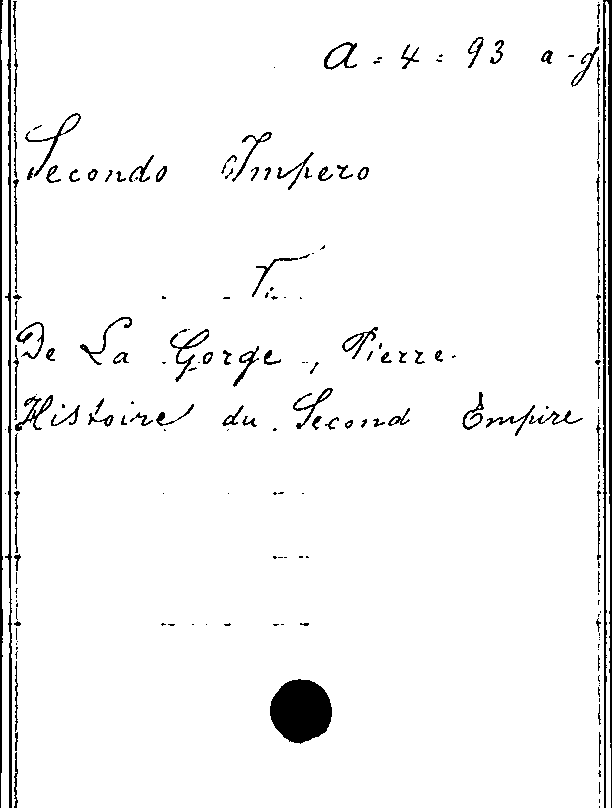 A = 4 = 93 a-g
Secondo Impero
V.
De La Gorge, Pierre.
Histoire du Second Empire